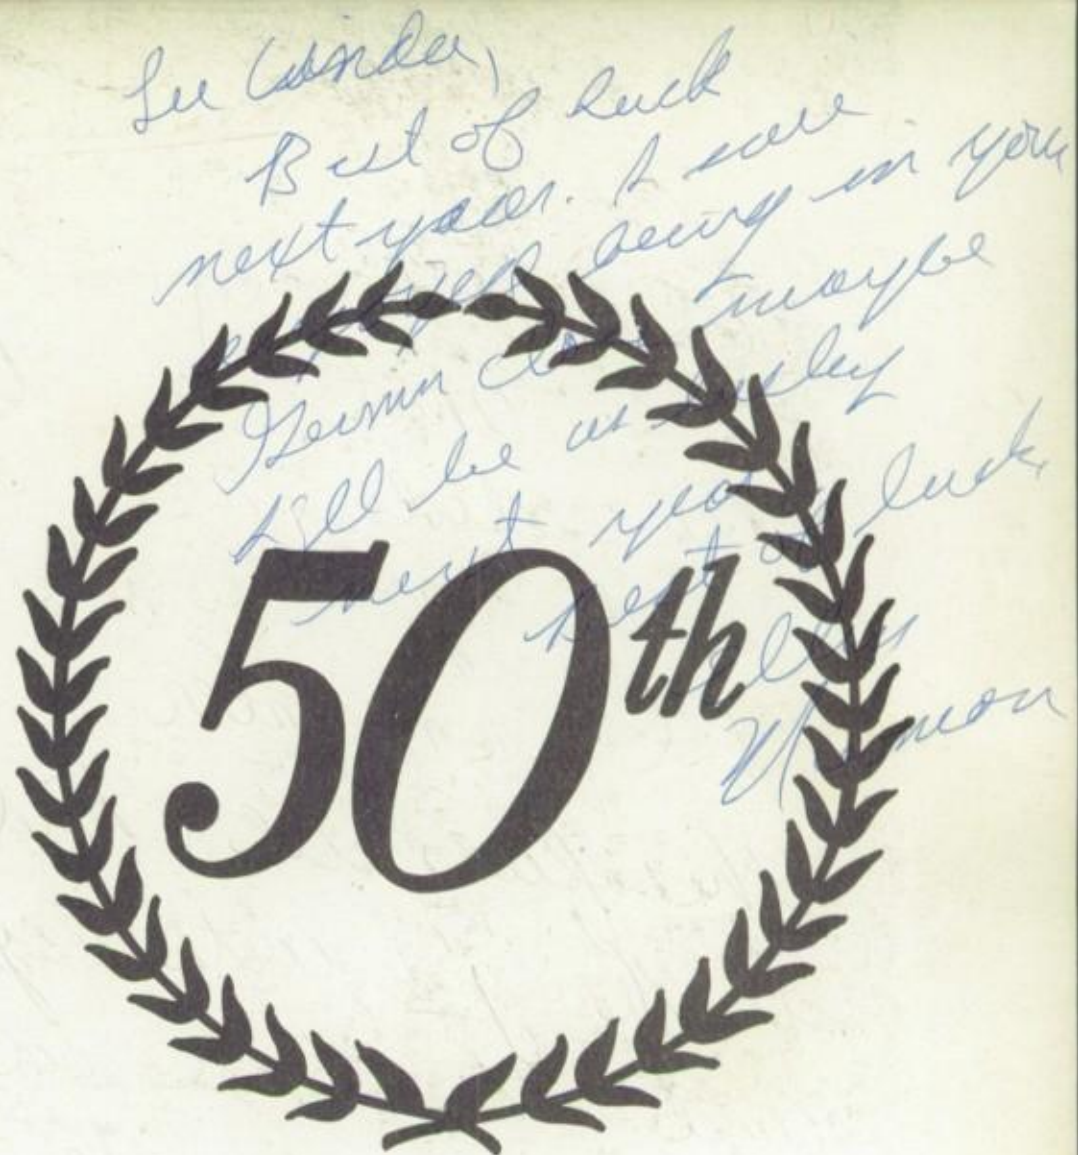 Lu Winda,
Best of luck
next year. I sure
enjoyed being in your
German class maybe
I'll be as
next year
best of luck
always
50th